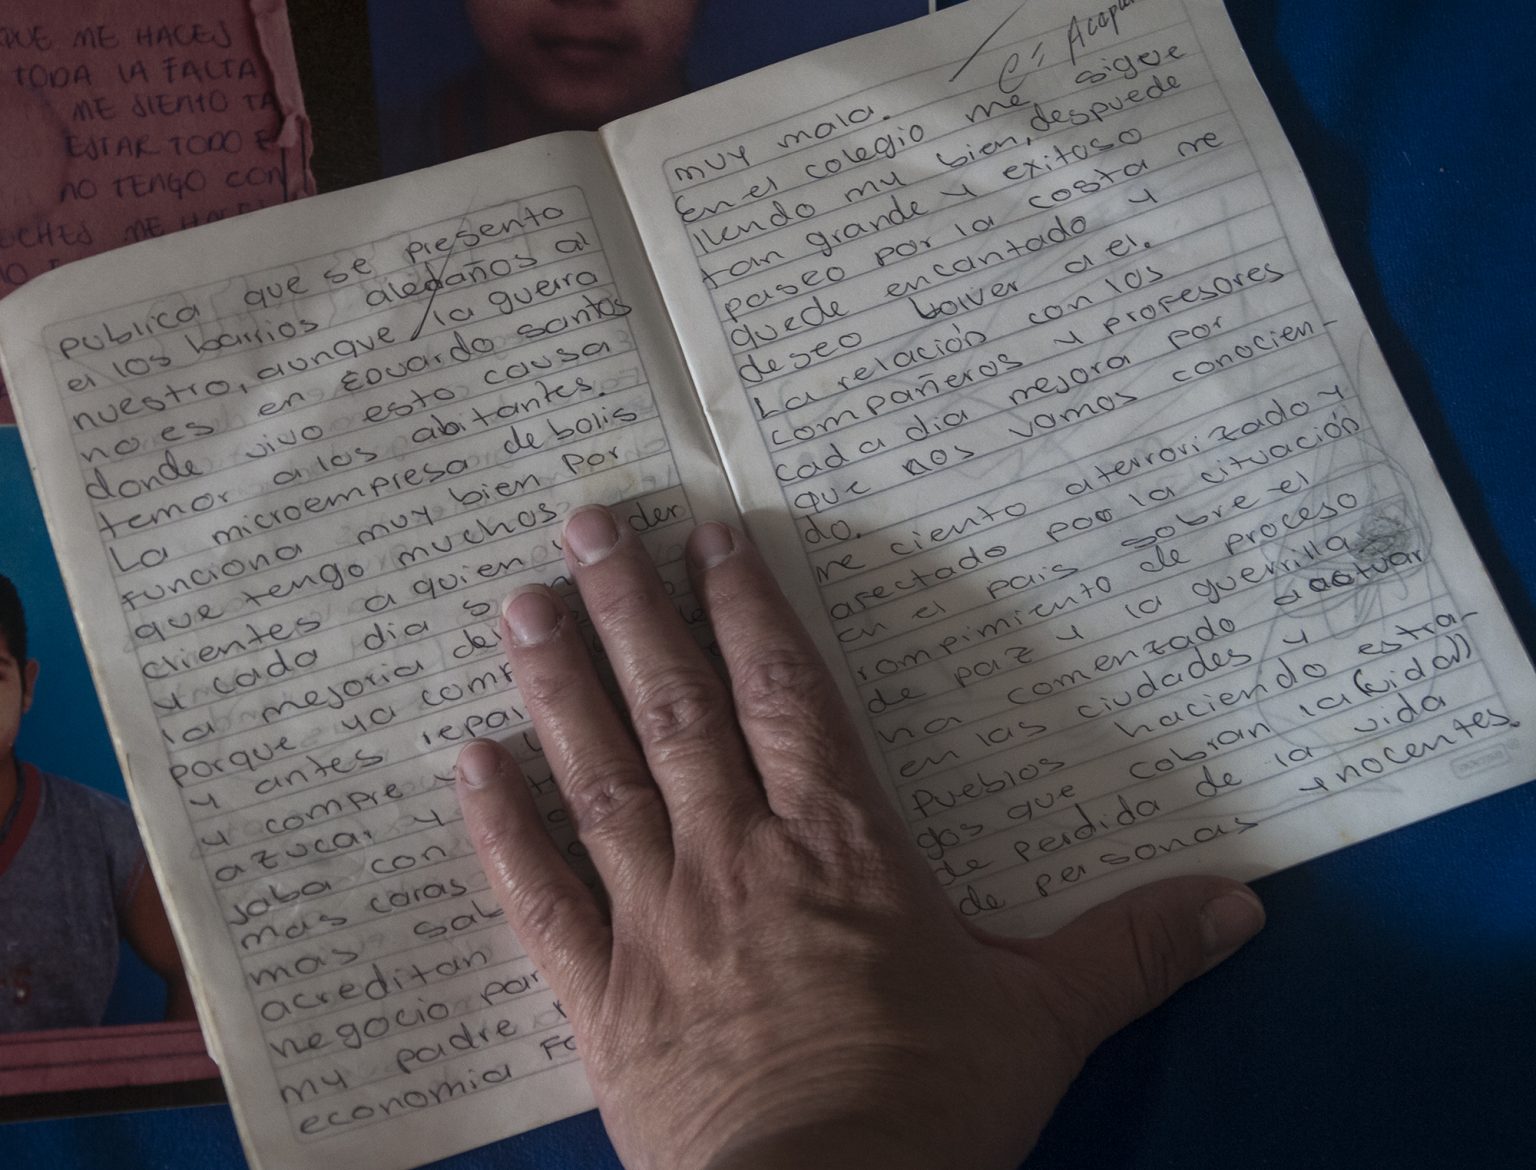 QUE ME HACES
TODA LA FALTA
ME SIENTO TA
ESTAR TODO E
NO TENGO CON
ME HACE
publica que se presento
el los barrios aledaños al
nuestro, aunque la guerra
no es en Eduardo santos
donde vivo esto causa
temor a los abitantes.
La microempresa de bolis
funciona muy bien por
que tengo muchos
clientes a quien der
y cada dia
la mejoria del
porque ya comp
y antes
y compre
azucar y
saba con
mas caras
mas sal
acreditan
negocio par
my padre
economia Fa
e = Acapa
muy mala.
En el colegio me sigue
llendo muy bien, despuede
tan grande y exitoso
paseo por la costa me
quede encantado y
deseo bolver a el.
La relación con los
compañeros y profesores
cada dia mejora por
que nos vamos conocien-
do.
me ciento aterrorizado y
afectado por la cituación
en el pais sobre el
rompimiento de proceso
de paz y la guerrilla
ha comenzado a actuar
en las ciudades y
pueblos haciendo estra-
gos que cobran la (vida)
de perdida de la vida
de personas ynocentes.